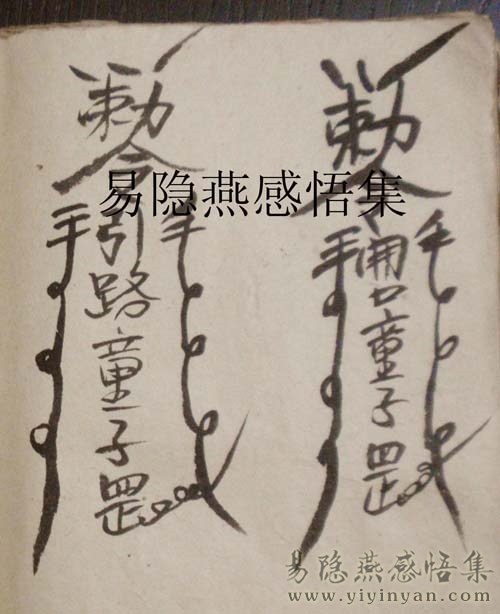 勅令
手引路童子罡手
勅令
手口童子罡手
易隐燕感悟集
易隐燕感悟集
www.yiyinyan.com